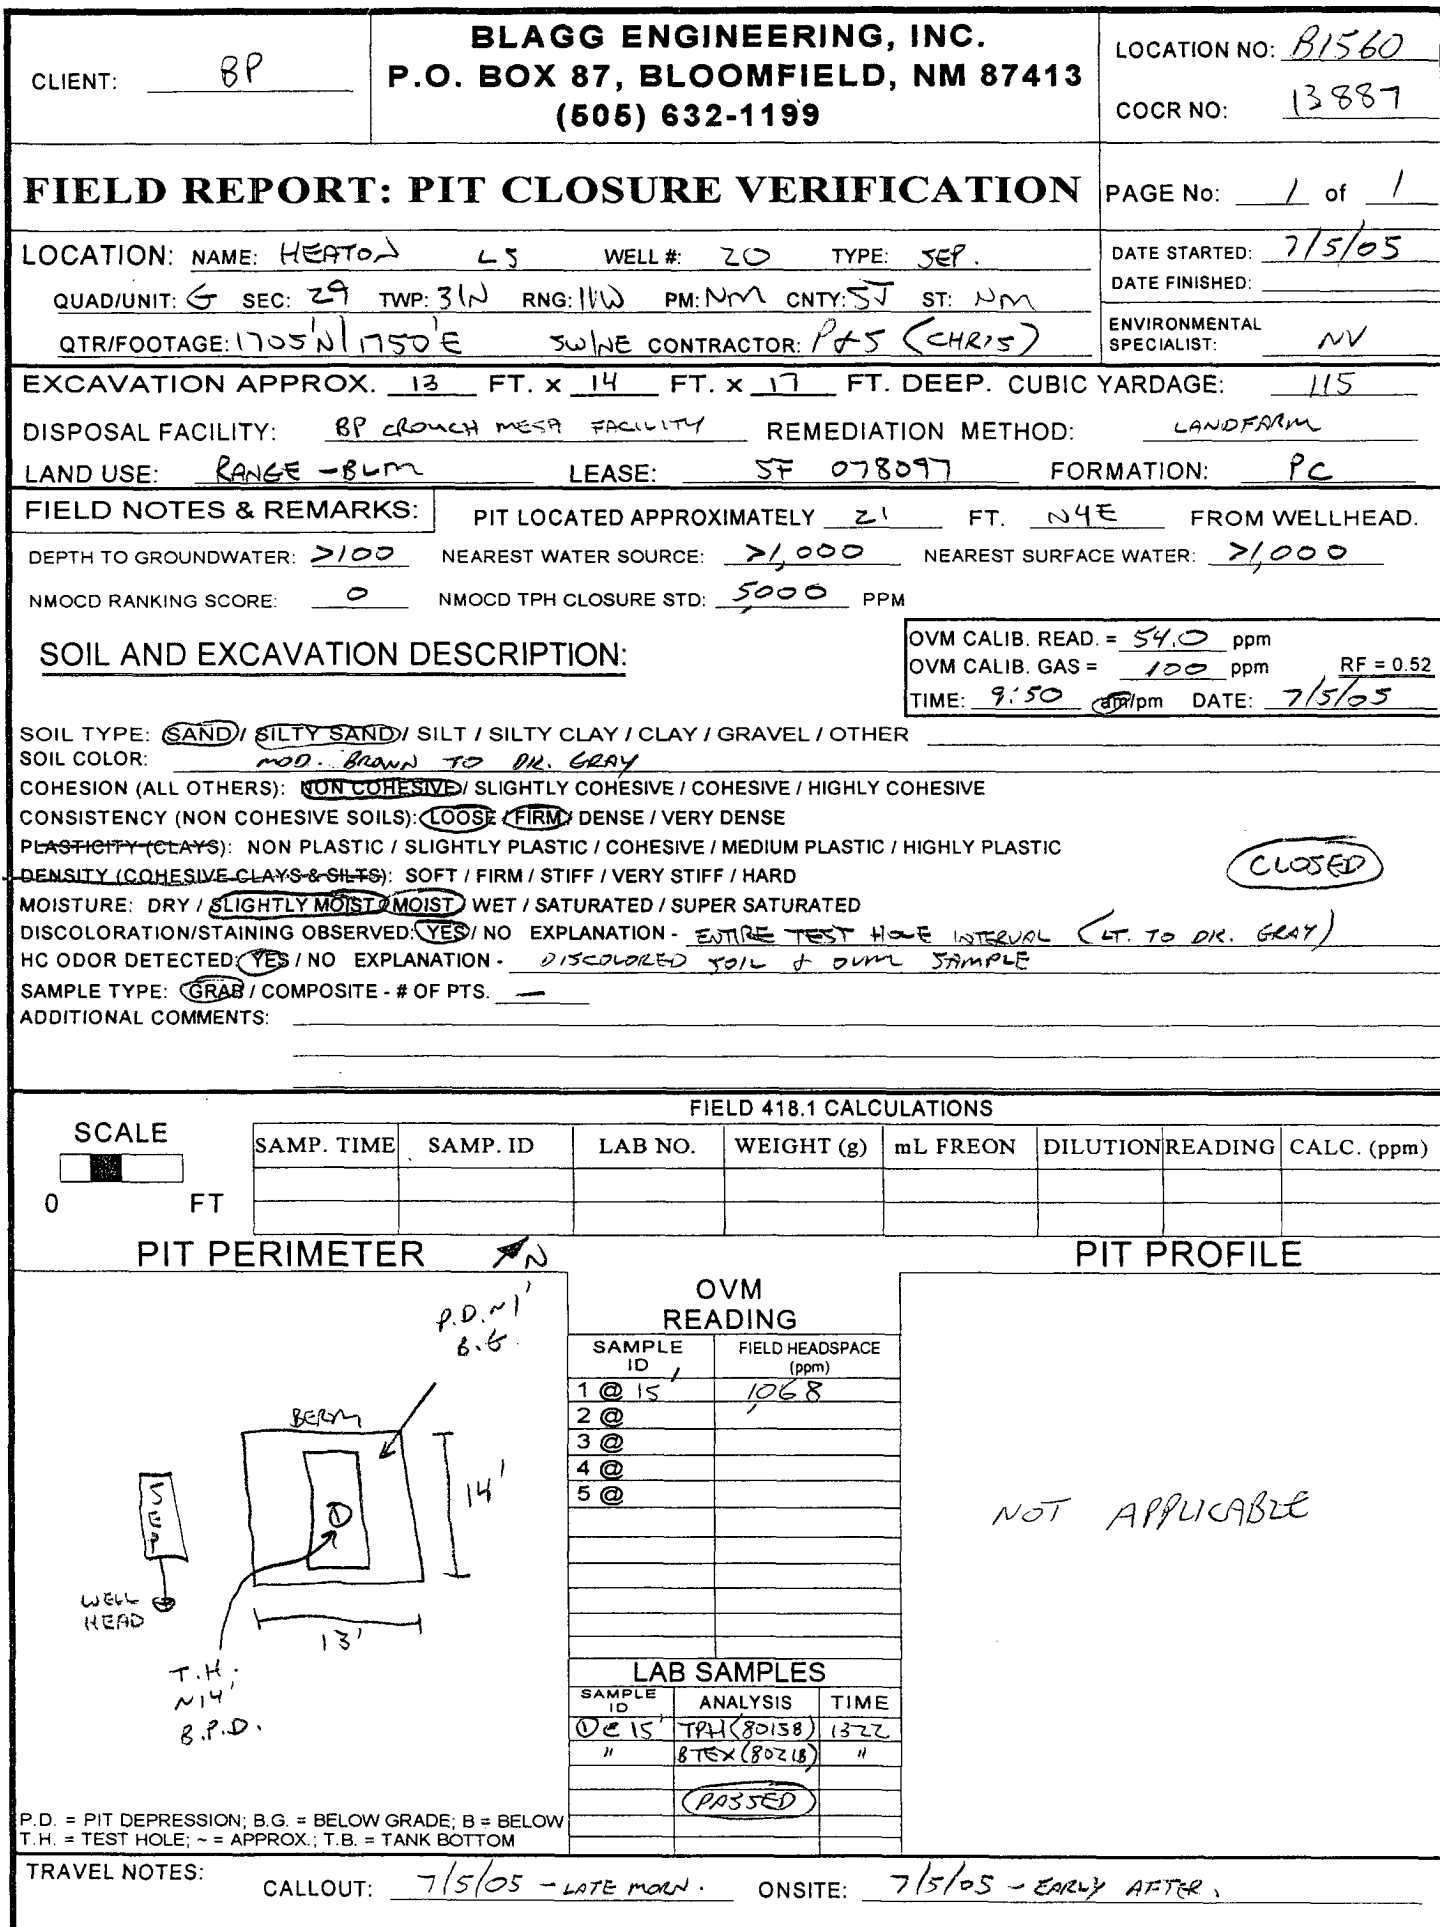 CLIENT: BP
BLAGG ENGINEERING, INC.
P.O. BOX 87, BLOOMFIELD, NM 87413
(505) 632-1199
LOCATION NO: B1560
COCR NO: 13887
FIELD REPORT: PIT CLOSURE VERIFICATION
PAGE No: 1 of 1
LOCATION: NAME: HEATON LS WELL #: 20 TYPE: SEP.
QUAD/UNIT: G SEC: 29 TWP: 31N RNG: 11W PM: NM CNTY: SJ ST: NM
QTR/FOOTAGE: 1705'N/1750'E SW/NE CONTRACTOR: P+S (CHRIS)
DATE STARTED: 7/5/05
DATE FINISHED:
ENVIRONMENTAL
SPECIALIST: NV
EXCAVATION APPROX. 13 FT. x 14 FT. x 17 FT. DEEP. CUBIC YARDAGE: 115
DISPOSAL FACILITY: BP CROUCH MESA FACILITY REMEDIATION METHOD: LANDFARM
LAND USE: RANGE - BLM LEASE: SF 078097 FORMATION: PC
FIELD NOTES & REMARKS: PIT LOCATED APPROXIMATELY 21 FT. N4E FROM WELLHEAD.
DEPTH TO GROUNDWATER: >100 NEAREST WATER SOURCE: >1,000 NEAREST SURFACE WATER: >1,000
NMOCD RANKING SCORE: 0 NMOCD TPH CLOSURE STD: 5,000 PPM
SOIL AND EXCAVATION DESCRIPTION:
OVM CALIB. READ. = 54.0 ppm
OVM CALIB. GAS = 100 ppm RF = 0.52
TIME: 9:50 am/pm DATE: 7/5/05
SOIL TYPE: SAND / SILTY SAND / SILT / SILTY CLAY / CLAY / GRAVEL / OTHER
SOIL COLOR: MOD. BROWN TO DK. GRAY
COHESION (ALL OTHERS): NON COHESIVE / SLIGHTLY COHESIVE / COHESIVE / HIGHLY COHESIVE
CONSISTENCY (NON COHESIVE SOILS): LOOSE / FIRM / DENSE / VERY DENSE
PLASTICITY (CLAYS): NON PLASTIC / SLIGHTLY PLASTIC / COHESIVE / MEDIUM PLASTIC / HIGHLY PLASTIC
DENSITY (COHESIVE CLAYS & SILTS): SOFT / FIRM / STIFF / VERY STIFF / HARD
CLOSED
MOISTURE: DRY / SLIGHTLY MOIST / MOIST / WET / SATURATED / SUPER SATURATED
DISCOLORATION/STAINING OBSERVED: YES / NO EXPLANATION - ENTIRE TEST HOLE INTERVAL (LT. TO DK. GRAY)
HC ODOR DETECTED: YES / NO EXPLANATION - DISCOLORED SOIL & OVM SAMPLE
SAMPLE TYPE: GRAB / COMPOSITE - # OF PTS. —
ADDITIONAL COMMENTS:
FIELD 418.1 CALCULATIONS
SCALE
0 FT
SAMP. TIME SAMP. ID LAB NO. WEIGHT (g) mL FREON DILUTION READING CALC. (ppm)
PIT PERIMETER N
P.D. ~1'
B.G.
BERM
14'
SEP
1
WELL
HEAD
13'
T.H.
~14'
B.P.D.
P.D. = PIT DEPRESSION; B.G. = BELOW GRADE; B = BELOW
T.H. = TEST HOLE; ~ = APPROX.; T.B. = TANK BOTTOM
OVM
READING
SAMPLE ID FIELD HEADSPACE (ppm)
1 @ 15' 1,068
2 @
3 @
4 @
5 @
LAB SAMPLES
SAMPLE ID ANALYSIS TIME
① @ 15' TPH (8015B) 1322
" BTEX (8021B) "
PASSED
PIT PROFILE
NOT APPLICABLE
TRAVEL NOTES: CALLOUT: 7/5/05 - LATE MORN. ONSITE: 7/5/05 - EARLY AFTER.